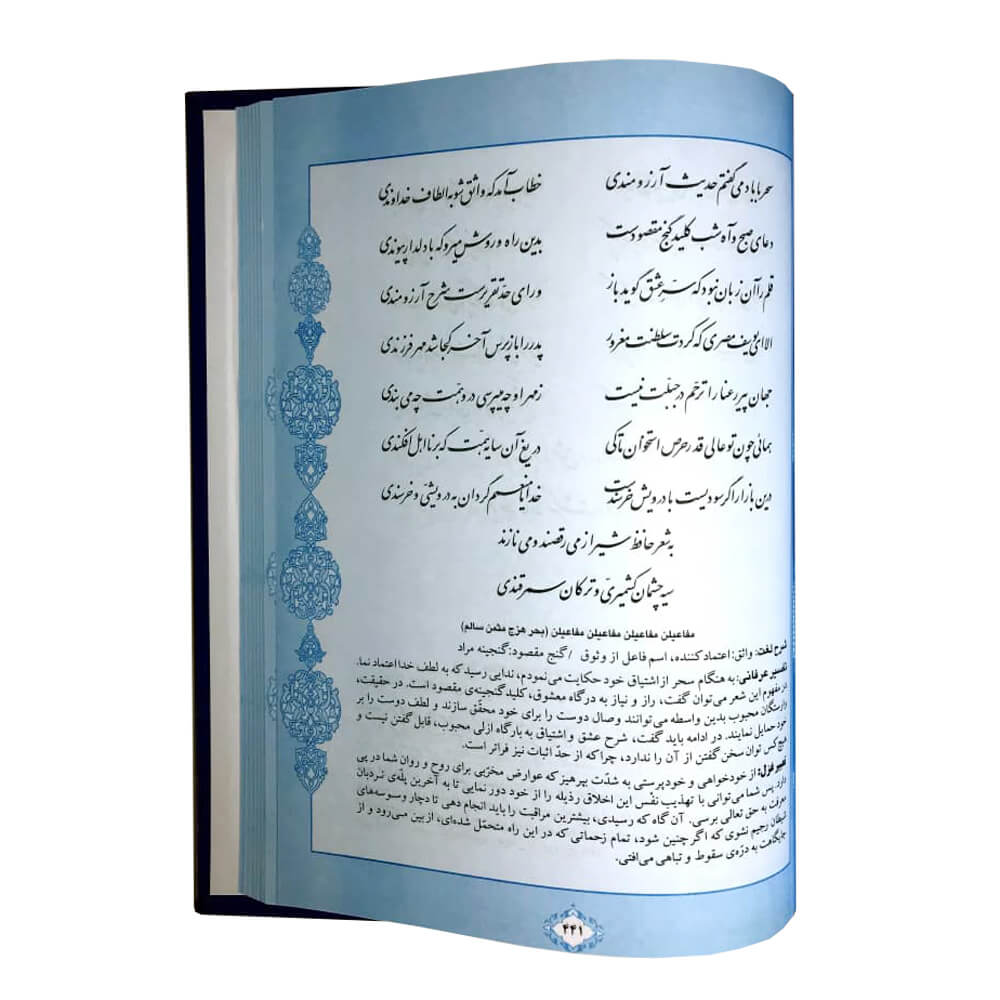 سحر با باد می گفتم حدیث آرزومندی خطاب آمد که واثق شو به الطاف خداوندی
دعای صبح و آه شب کلید گنج مقصودست بدین راه و روش می‌رو که با دلدار پیوندی
قلم را آن زبان نبود که سرّ عشق گوید باز ورای حدّ تقریرست شرح آرزومندی
الا ای یوسف مصری که کردت سلطنت مغرور پدر را باز پرس آخر کجا شد مهر فرزندی
جهان پیر رعنا را ترحّم در جبلّت نیست ز مهر او چه می‌پرسی در و همّت چه می‌بندی
همائی چون تو عالی قدر حرص استخوان تا کی دریغ آن سایه همّت که بر نااهل افکندی
درین بازار اگر سودیست با درویش خرسندست خدایا منعمم گردان به درویشی و خرسندی
به شعر حافظ شیراز می رقصند و می نازند
سیه چشمان کشمیریّ و ترکان سمرقندی
مفاعیلن مفاعیلن مفاعیلن مفاعیلن (بحر هزج مثمن سالم)
شرح لغت: واثق: اعتمادکننده، اسم فاعل از وثوق / گنج مقصود: گنجینه مراد
تفسیر عرفانی: به هنگام سحر از اشتیاق خود حکایت می‌نمودم، ندایی رسید که به لطف خدا اعتماد نما.
در مفهوم این شعر می‌توان گفت، راز و نیاز به درگاه معشوق، کلید گنجینه‌ی مقصود است. در حقیقت،
وارستگان محبوب بدین واسطه می‌توانند وصال دوست را برای خود محقّق سازند و لطف دوست را بر
خود حمایل نمایند. در ادامه باید گفت، شرح عشق و اشتیاق به بارگاه ازلی محبوب، قابل گفتن نیست و
هیچ کس توان سخن گفتن از آن را ندارد، چرا که از حدّ اثبات نیز فراتر است.
تعبیر غزل: از خودخواهی و خودپرستی به شدّت بپرهیز که عوارض مخرّبی برای روح و روان شما در پی
دارد. پس شما می‌توانی با تهذیب نفْس این اخلاق رذیله را از خود دور نمایی تا به آخرین پلّه‌ی نردبان
معرفت به حق تعالی برسی. آن گاه که رسیدی، بیشترین مراقبت را باید انجام دهی تا دچار وسوسه‌های
شیطان رجیم نشوی که اگر چنین شود، تمام زحماتی که در این راه متحمّل شده‌ای، از بین می‌رود و از
جایگاهت به درّه‌ی سقوط و تباهی می‌افتی.
۴۴۱